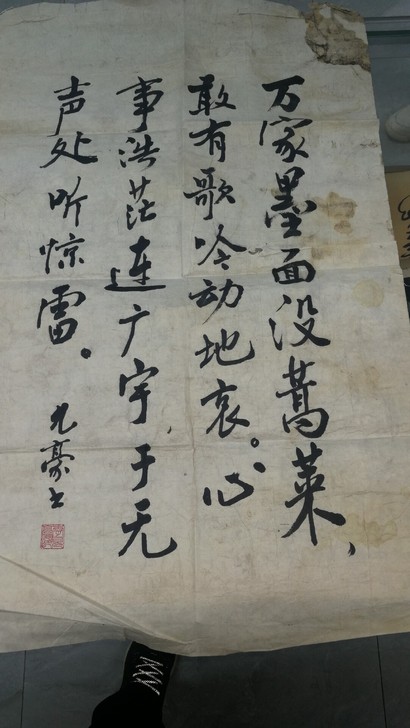 万家墨面没蒿莱，
敢有歌吟动地哀。心
事浩茫连广宇，于无
声处听惊雷。
豪书